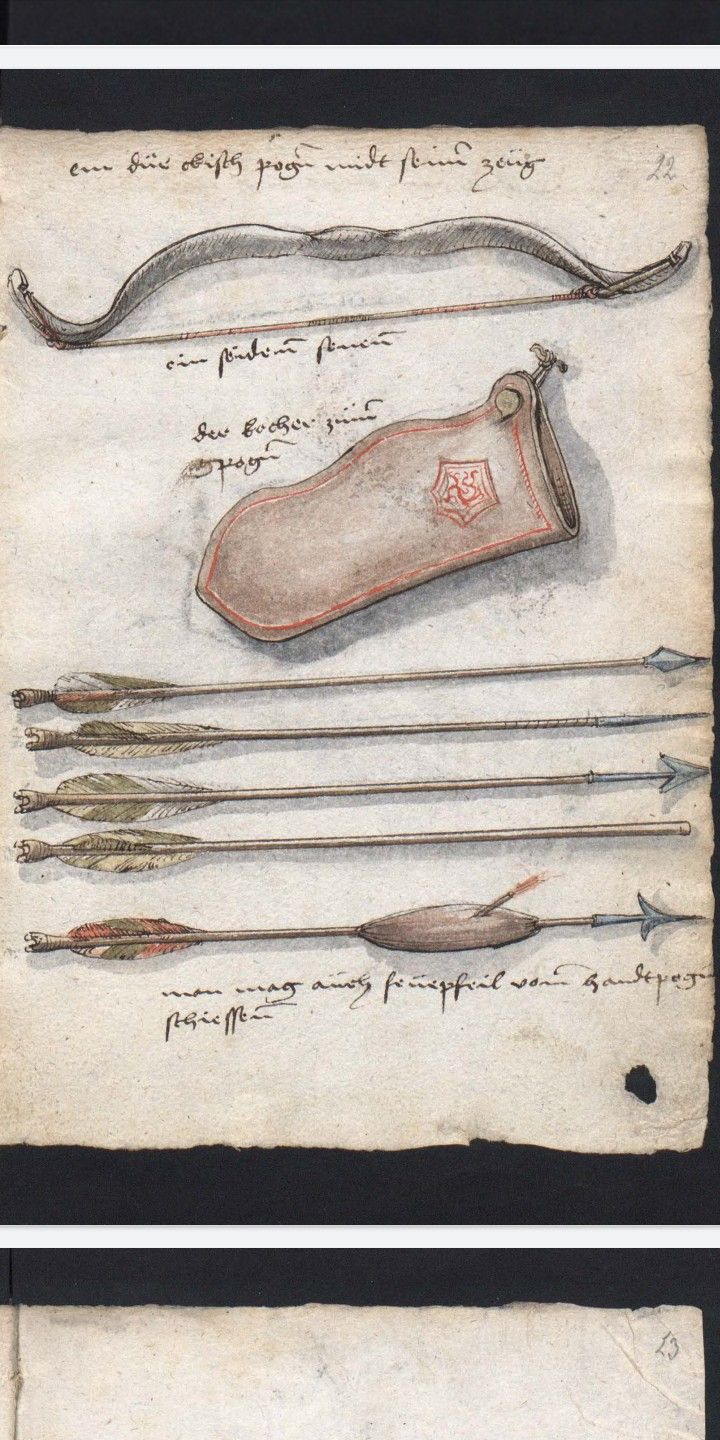 ein dürckisch pogn̄ midt seinm̄ zeüg
22
ein seidenn̄ senen̄
der kocher zūm̄
pogn̄
man mag aūch feürpfeil vom̄ handtpogn̄
schiessenn̄
23